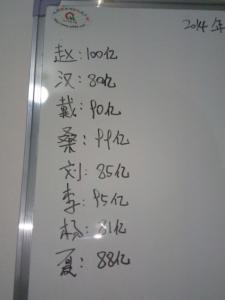 2014年
赵:100亿
汉:80亿
戴:90亿
桑:99亿
刘:85亿
李:95亿
杨:81亿
夏:88亿